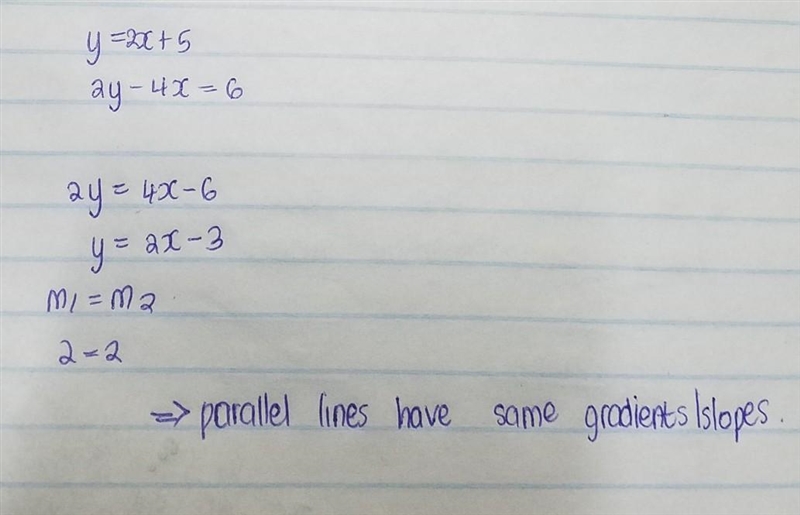 y = 2x + 5
2y - 4x = 6
2y = 4x - 6
y = 2x - 3
m1 = m2
2 = 2
⇒ parallel lines have same gradients/slopes.